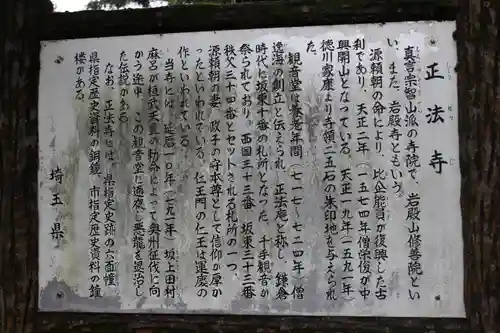 正法寺
真言宗智山派の寺院で、岩殿山修善院とい
い、また、岩殿寺ともいう。
源頼朝の命により、比企能員が復興した古
刹であり、天正二年(一五七四年)僧栄俊が中
興開山となっている。天正一九年(一五九一年)
徳川家康より寺領二五石の朱印地を与えられ
た。
観音堂は養老年間(七一七〜七二四年)僧
逸海の創立と伝えられ、正法庵と称し、鎌倉
時代に坂東十番の札所となった。千手観音が
祭られており、西国三十三番、坂東三十三番
秩父三十四番とセットされる札所の一つ、
源頼朝の妻、政子の守本尊として信仰が厚か
ったといわれている。仁王門の仁王は運慶の
作といわれている。
当寺には、延暦一〇年(七九一年)坂上田村
麻呂が桓武天皇の勅命によって奥州征伐に向
かう途中、この観音堂に通夜し悪龍を退治し
た伝説がある。
なお、正法寺には、県指定史跡の六面幢、
県指定歴史資料の銅鐘、市指定歴史資料の鐘
楼がある。
埼玉県